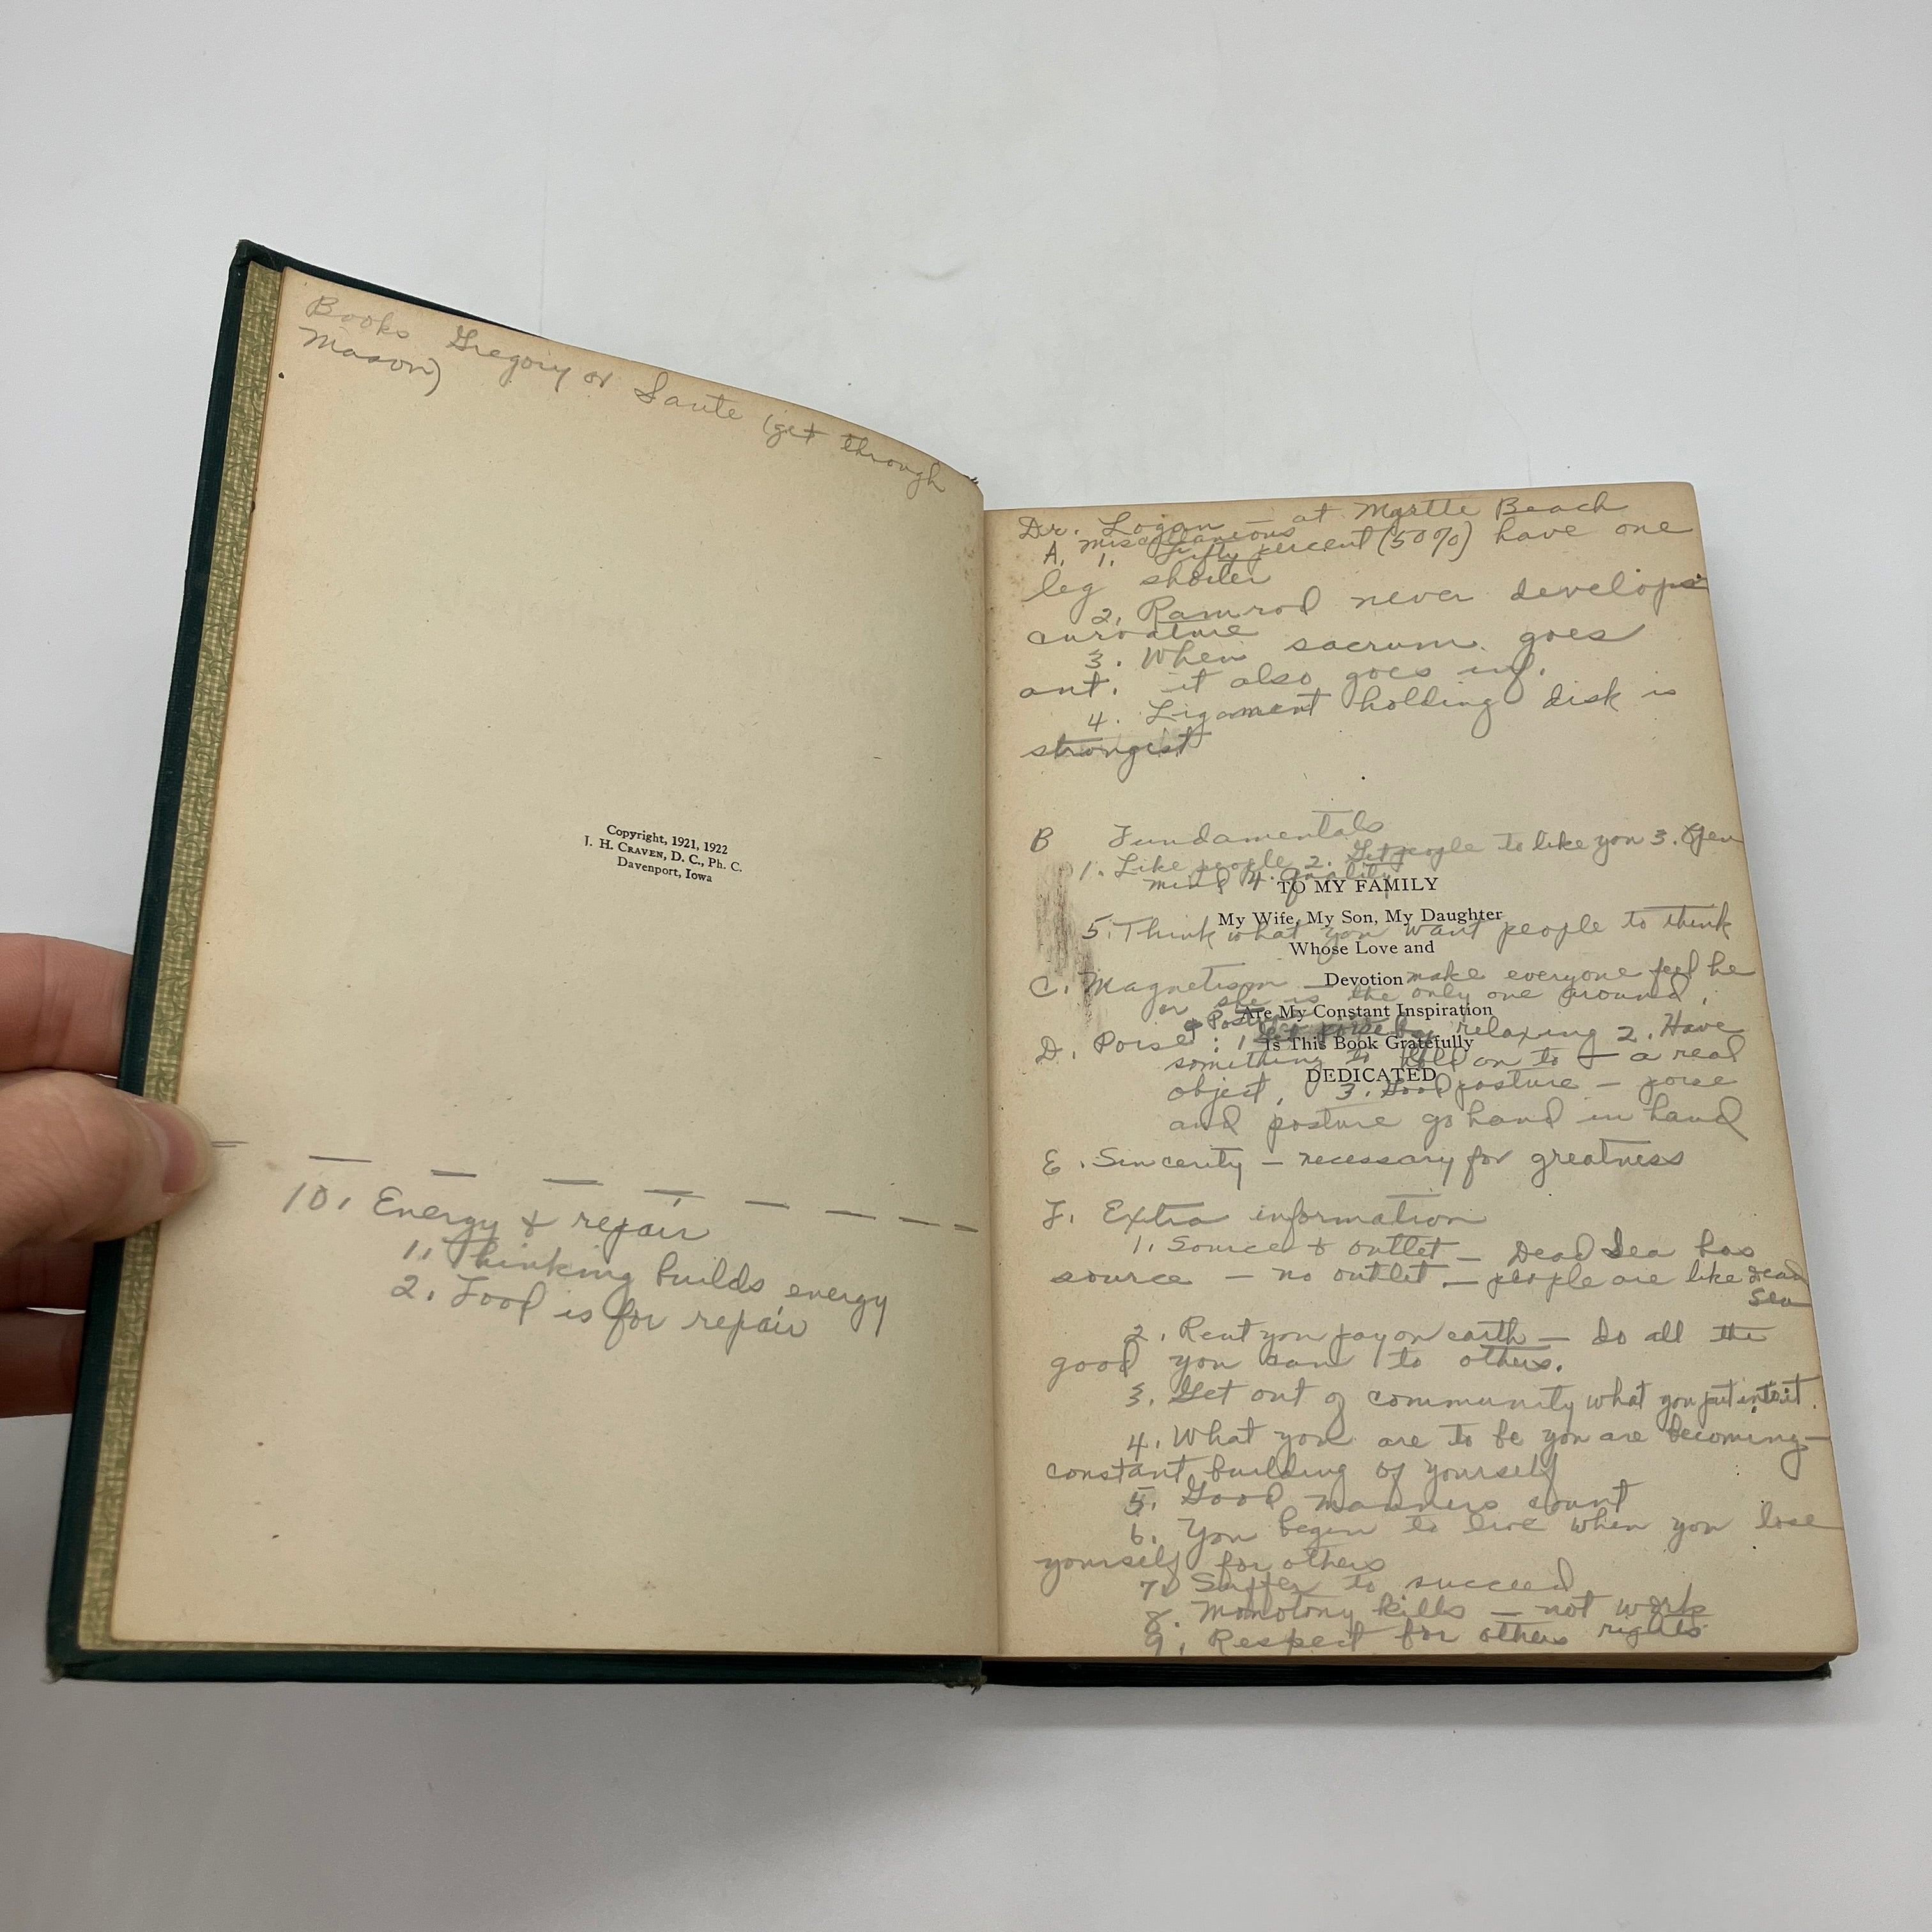 Books Gregory or Saute (get through
Mason)
Copyright, 1921, 1922
J. H. CRAVEN, D. C., Ph. C.
Davenport, Iowa
10. Energy & repair
1. Thinking builds energy
2. Food is for repair
Dr. Logan — at Myrtle Beach
A. Miscellaneous
1. Fifty percent (50%) have one
leg shorter
2. Ramrod never develops
curvature
3. When sacrum goes
ant. it also goes inf.
4. Ligament holding disk is
strongest
B Fundamentals
1. Like people 2. Get people to like you 3. Open
mind 4. Quality
TO MY FAMILY
My Wife, My Son, My Daughter
5. Think what you want people to think
Whose Love and
Devotion
C. Magnetism — make everyone feel he
or she is the only one around.
Are My Constant Inspiration
D. Poise & Posture: 1. Get poise by relaxing 2. Have
Is This Book Gratefully
something to hold on to — a real
DEDICATED
object, 3. Good posture — poise
and posture go hand in hand
E. Sincerity — necessary for greatness
F. Extra information
1. Source & outlet — Dead Sea has
source — no outlet — people are like Dead
Sea
2. Rent you pay on earth — do all the
good you can to others.
3. Get out of community what you put into it.
4. What you are to be you are becoming —
constant building of yourself
5. Good manners count
6. You begin to live when you lose
yourself for others
7. Suffer to succeed
8. Monotony kills — not work
9. Respect for others rights